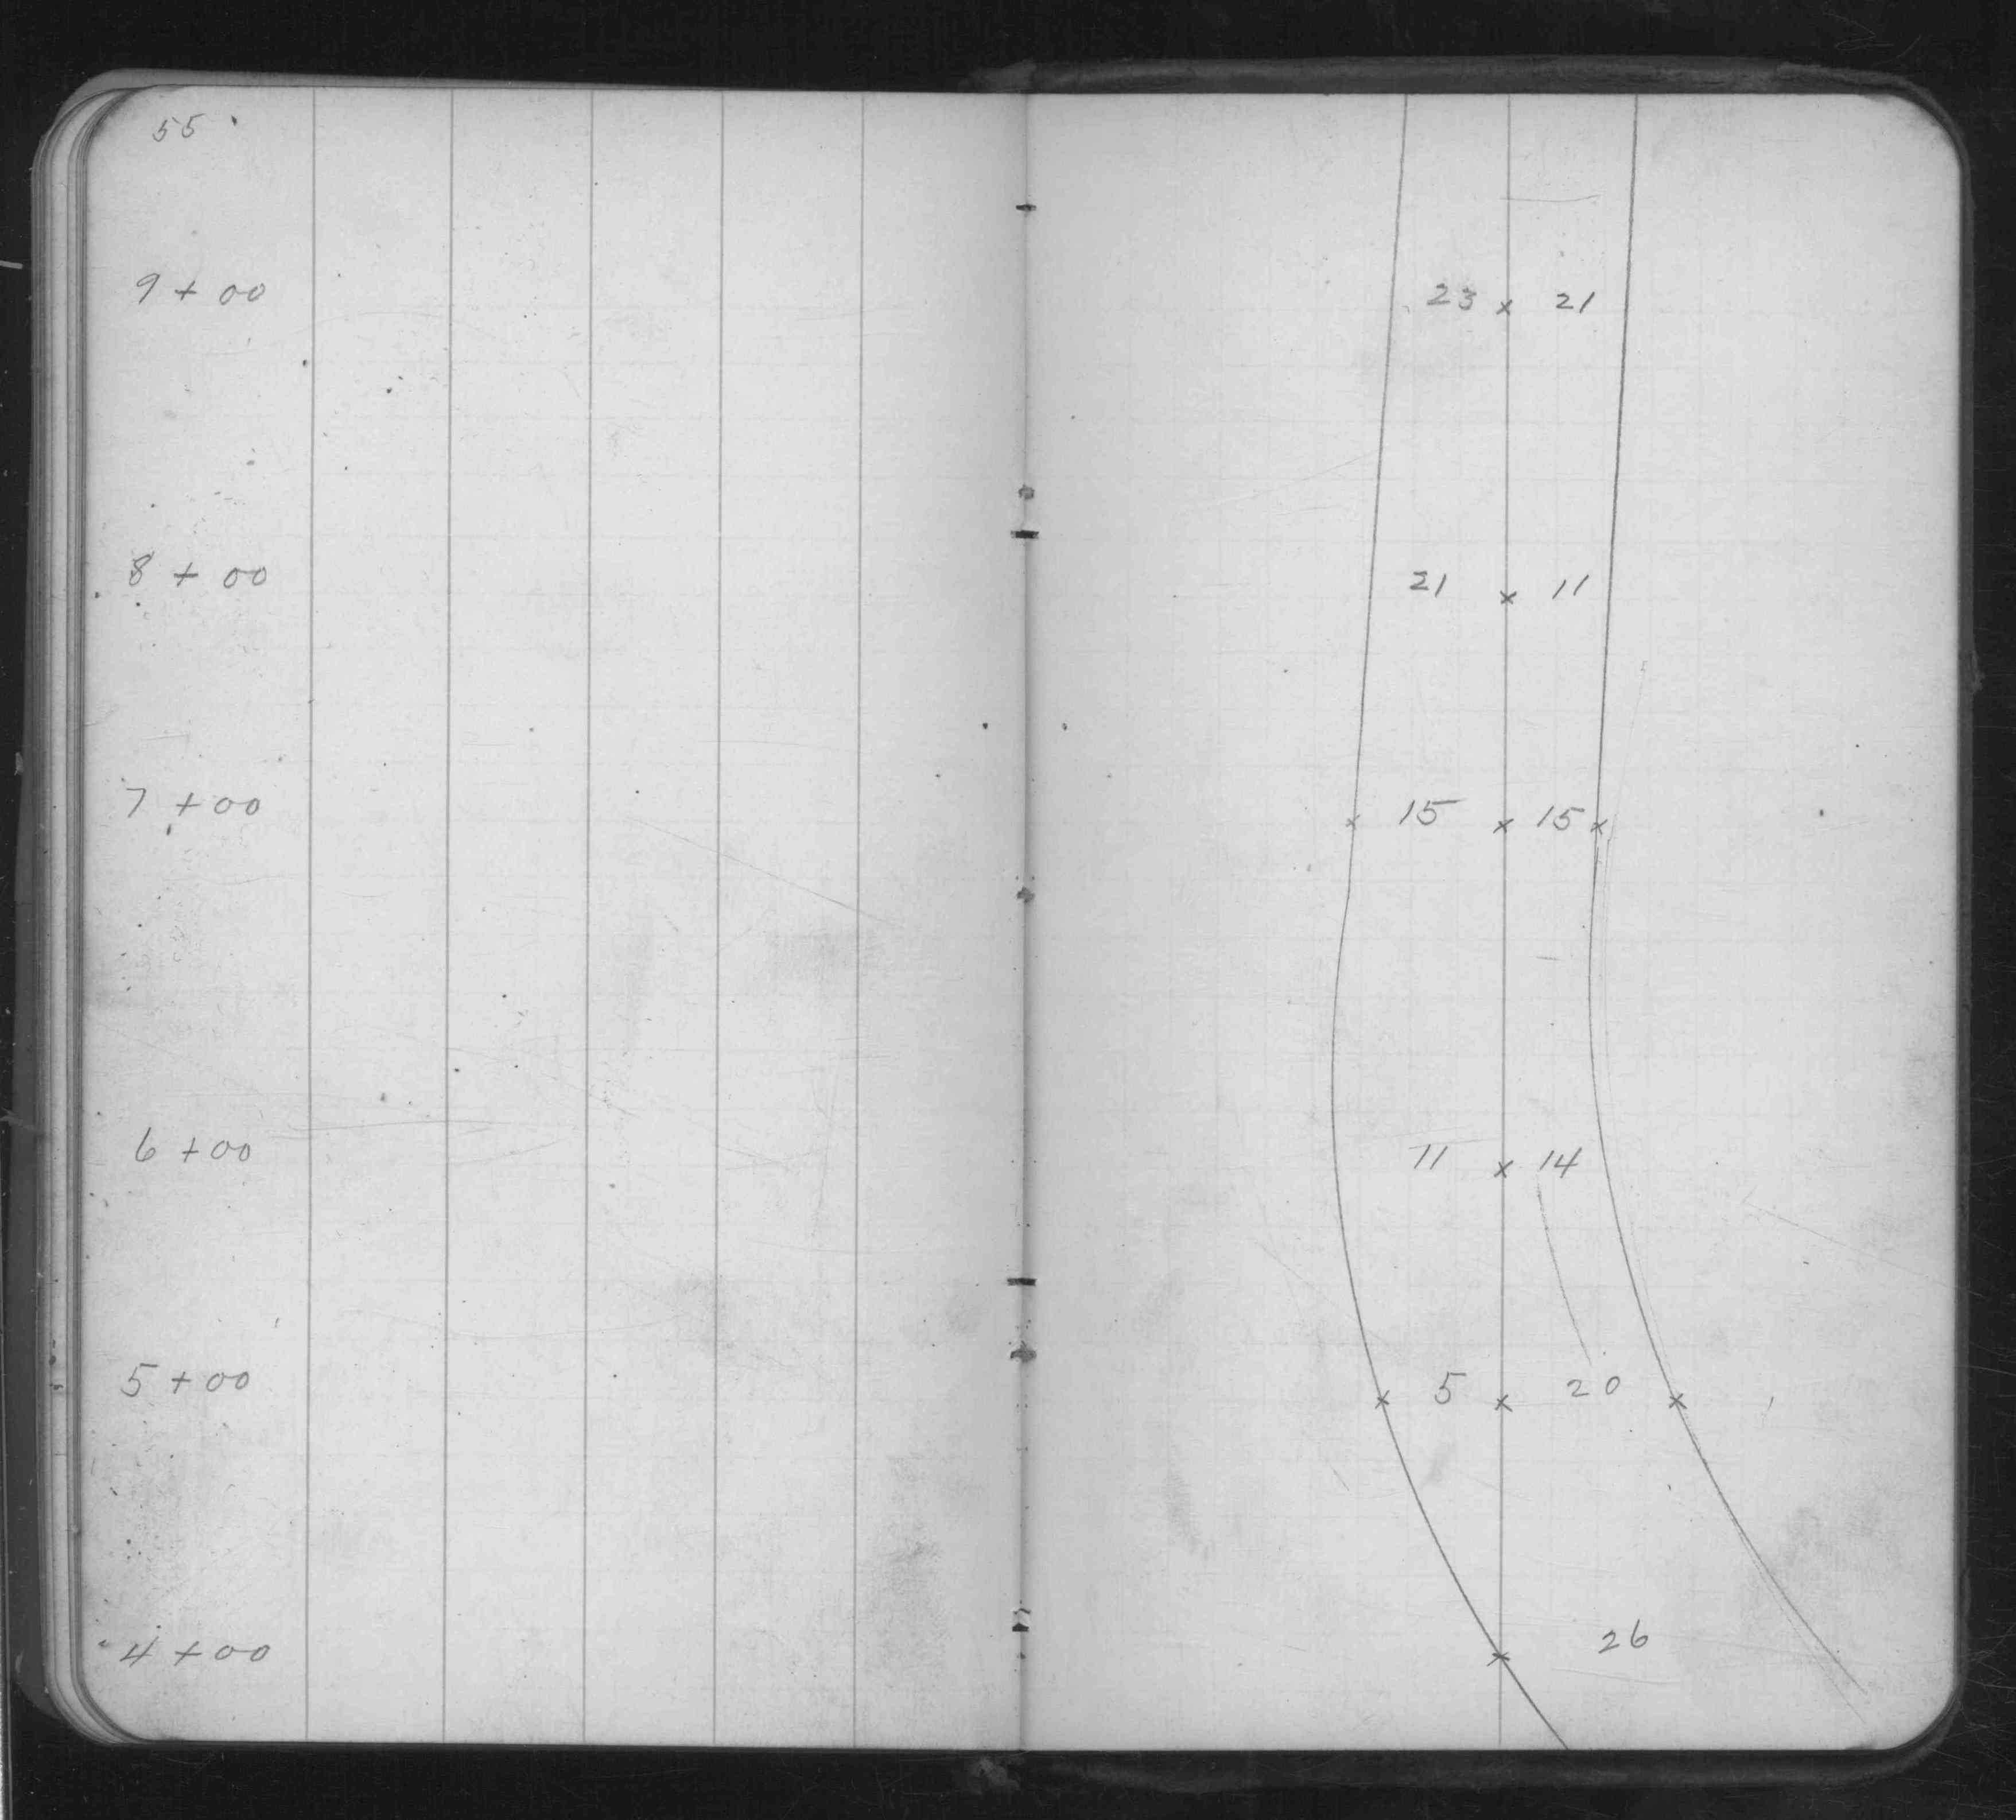 55
9 + 00 23 x 21
8 + 00 21 x 11
7 + 00 x 15 x 15 x
6 + 00 11 x 14
5 + 00 x 5 x 20 x
4 + 00 x 26